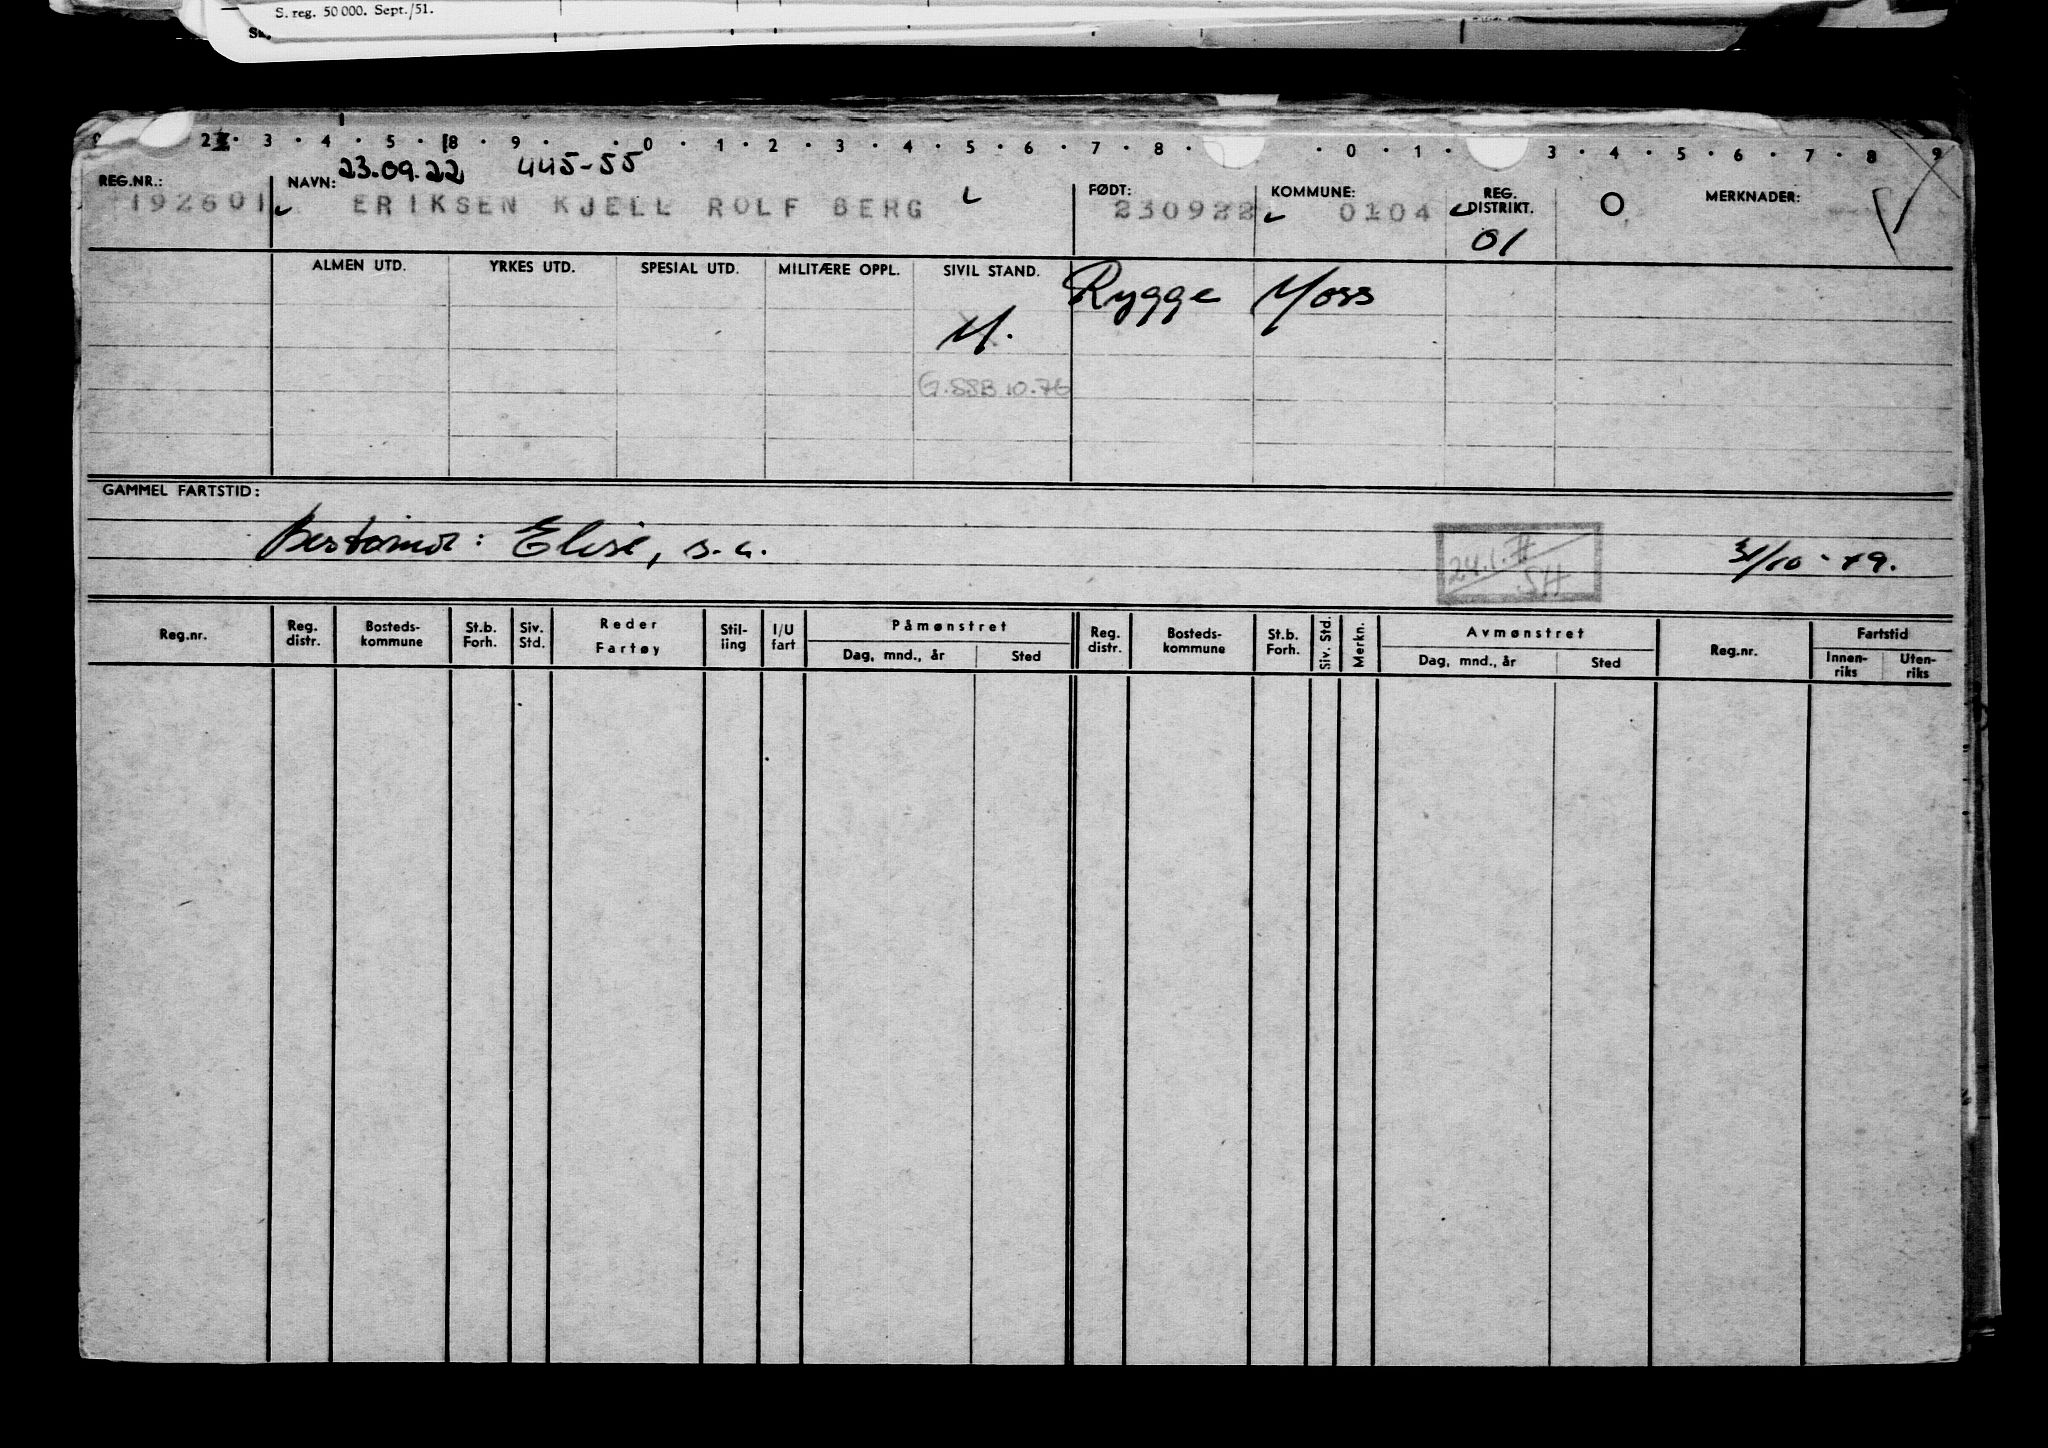 S. reg. 50 000. Sept./51.
2 3 · 4 · 5 · 8 · 9 · · 0 · 1 · 2 · 3 · 4 · 5 · 6 · 7 · 8 · · 0 · 1 · 3 · 4 · 5 · 6 · 7 · 8 9
23.09.22 445-55
REG.NR.: NAVN: FØDT: KOMMUNE: REG. DISTRIKT. O MERKNADER:
192601 ERIKSEN KJELL ROLF BERG 230922 0104
01
ALMEN UTD. YRKES UTD. SPESIAL UTD. MILITÆRE OPPL. SIVIL STAND.
Rygge Moss
G.SSB 10.76
GAMMEL FARTSTID:
Bestemor: Elise, s.a.
24.1. SH
31/10-49.
Reg.nr. Reg. distr. Bosteds-kommune St.b. Forh. Siv. Std. Reder Fartøy Stil-ling I/U fart Påmønstret Dag, mnd., år Sted Reg. distr. Bosteds-kommune St.b. Forh. Siv. Std. Merkn. Avmønstret Dag, mnd., år Sted Reg.nr. Fartstid Innen-riks Uten-riks